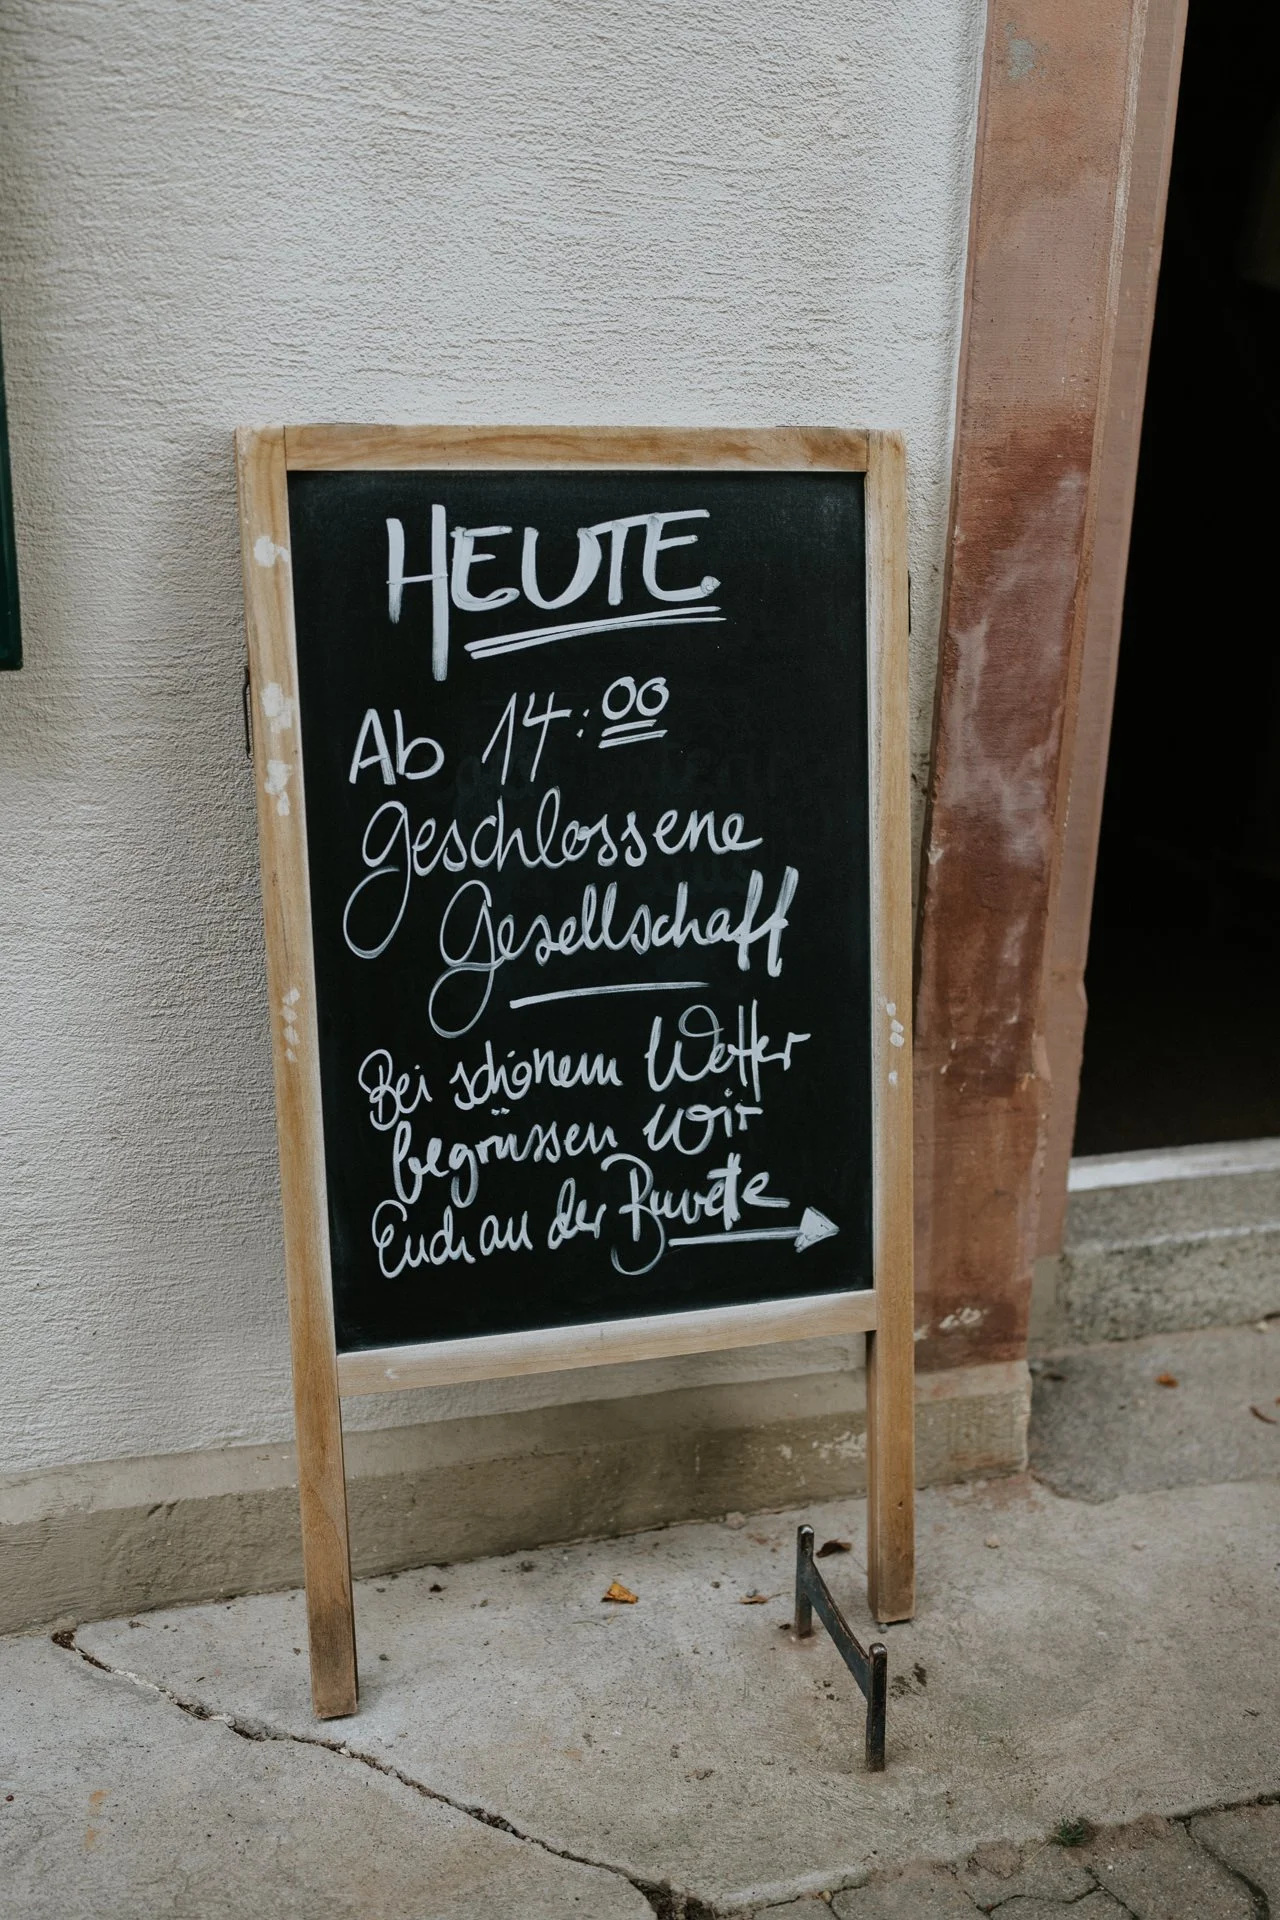 HEUTE.
Ab 14:00
geschlossene
Gesellschaft
Bei schönem Wetter
begrüssen wir
Euch an der Buvette